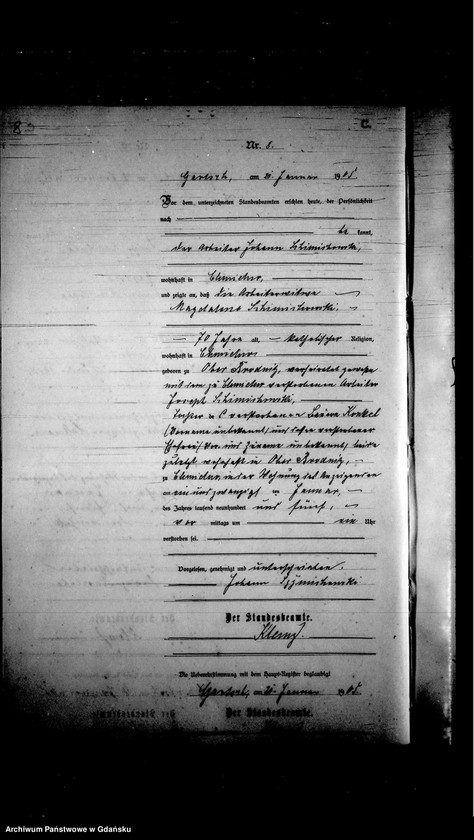 8.
C.
Nr. 8.
am 21. Januar 1905
Vor dem unterzeichneten Standesbeamten erschien heute, der Persönlichkeit
nach
be kannt,
der Arbeiter Johann
wohnhaft in Chmielno,
und zeigte an, daß die Arbeiterwitwe
Magdalena
70 Jahre alt, katholischer Religion,
wohnhaft in Chmielno
geboren zu Ober Brodnitz, verheiratet gewesen
mit dem zu Chmielno verstorbenen Arbeiter
Joseph
Tochter des verstorbenen Konkel
(Vorname unbekannt) und verstorbener
Ehefrau, Vor- und Zuname unbekannt, beide
zuletzt wohnhaft in Ober Brodnitz,
zu Chmielno, in der Wohnung des Anzeigenden
am ein und zwanzigsten Januar,
des Jahres tausend neunhundert und fünf,
vor mittags um ein Uhr
verstorben sei.
Vorgelesen, genehmigt und unterschrieben.
Johann
Der Standesbeamte.
Die Uebereinstimmung mit dem Haupt-Register beglaubigt
am 21. Januar 1905.
Der Standesbeamte.
Archiwum Państwowe w Gdańsku